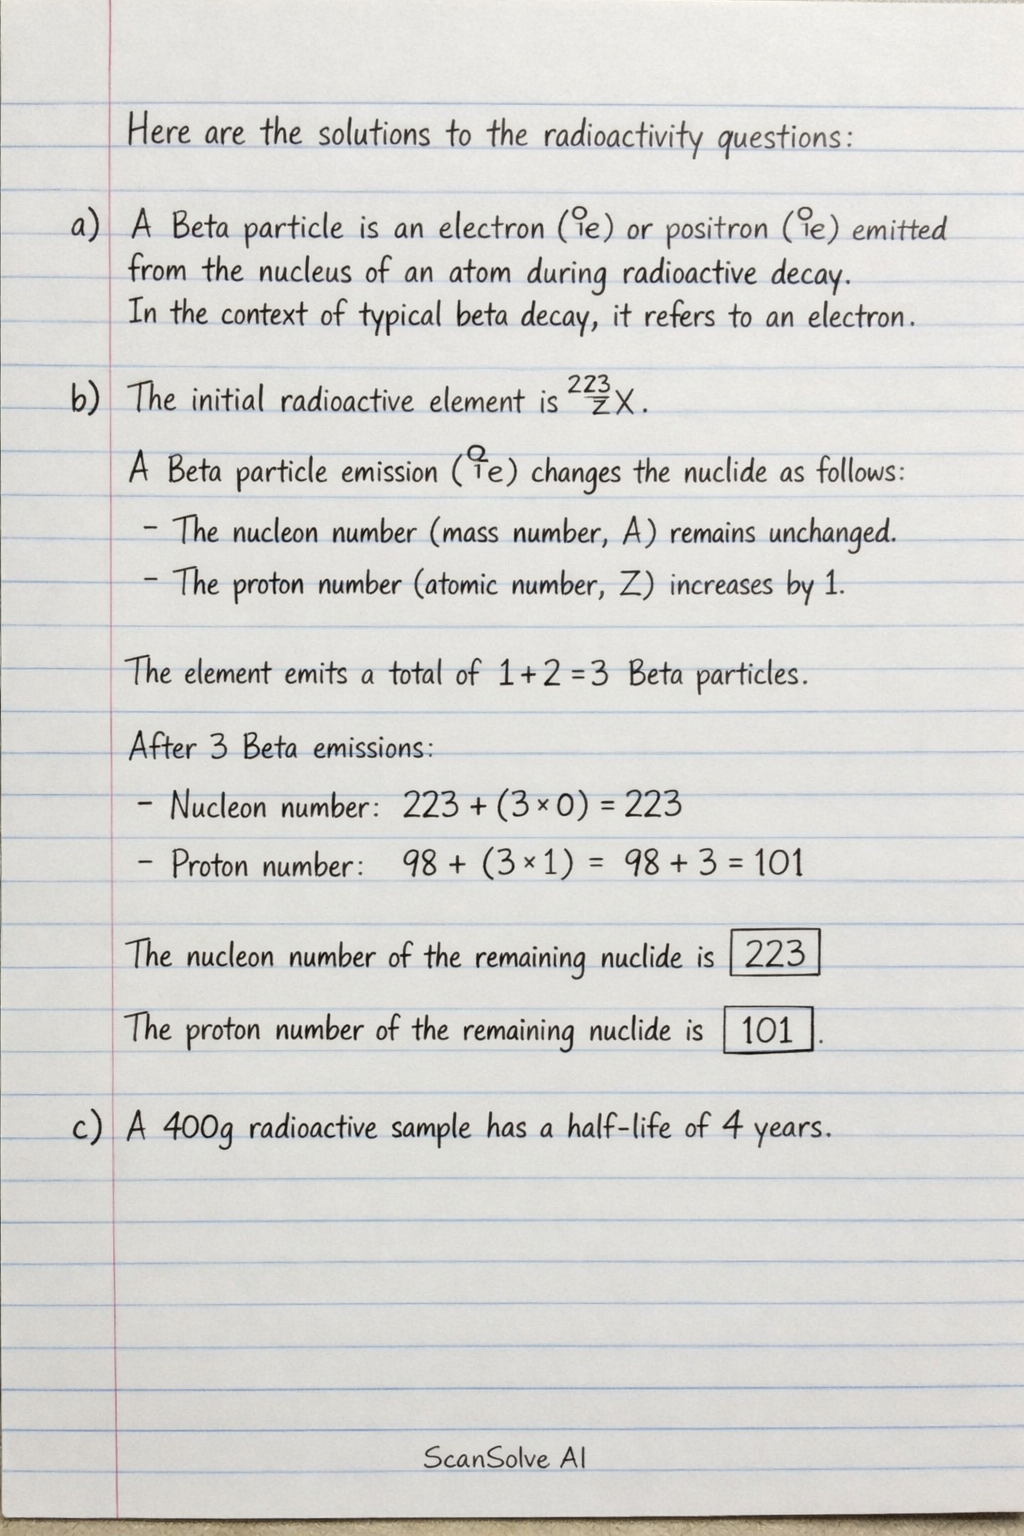 Here are the solutions to the radioactivity questions:
a) A Beta particle is an electron (⁰₁e) or positron (⁰₁e) emitted
from the nucleus of an atom during radioactive decay.
In the context of typical beta decay, it refers to an electron.
b) The initial radioactive element is ²²³_Z X.
A Beta particle emission (⁰₁e) changes the nuclide as follows:
- The nucleon number (mass number, A) remains unchanged.
- The proton number (atomic number, Z) increases by 1.
The element emits a total of 1+2=3 Beta particles.
After 3 Beta emissions:
- Nucleon number: 223 + (3×0) = 223
- Proton number: 98 + (3×1) = 98 + 3 = 101
The nucleon number of the remaining nuclide is 223
The proton number of the remaining nuclide is 101.
c) A 400g radioactive sample has a half-life of 4 years.
ScanSolve AI